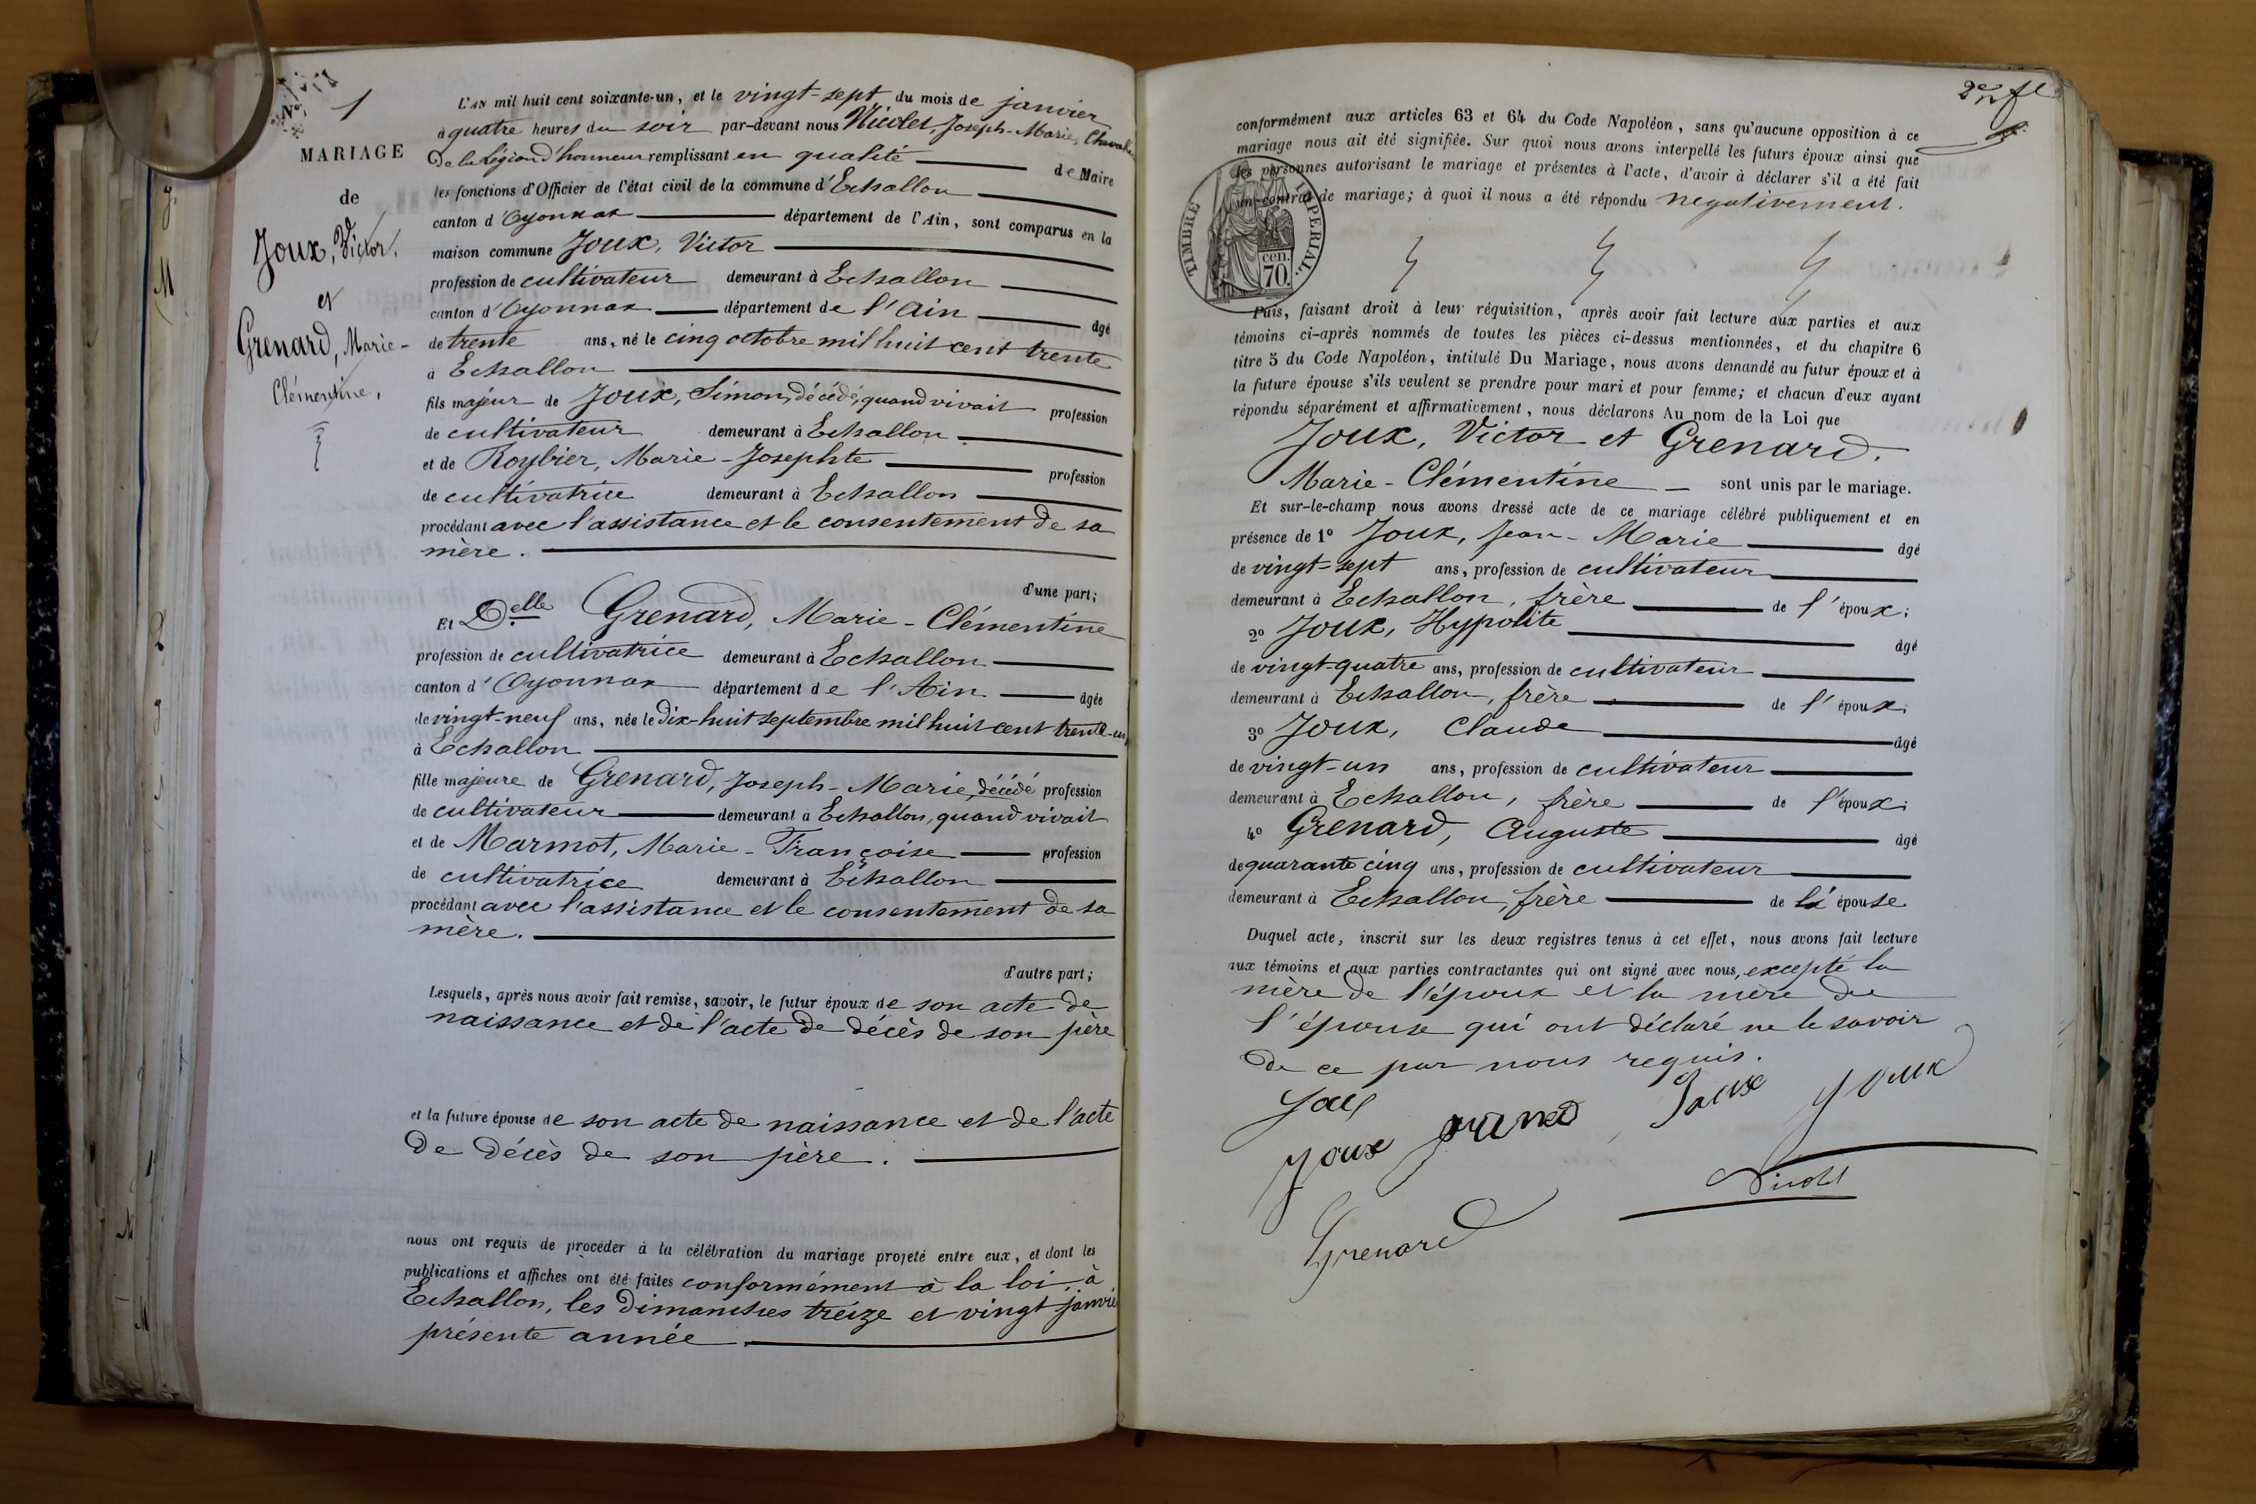 N° 1
MARIAGE
de
Joux, Victor.
et
Grenard, Marie-
Clémentine,
L'AN mil huit cent soixante-un, et le vingt-sept du mois de janvier
à quatre heures du soir par-devant nous Nicolet, Joseph-Marie, Chevalier
de la Légion d'honneur remplissant en qualité de Maire
les fonctions d'Officier de l'état civil de la commune d'Echallon
canton d'Oyonnax département de l'Ain, sont comparus en la
maison commune Joux, Victor
profession de cultivateur demeurant à Echallon
canton d'Oyonnax département de l'Ain âgé
de trente ans, né le cinq octobre mil huit cent trente
à Echallon
fils majeur de Joux, Simon, décédé, quand vivait profession
de cultivateur demeurant à Echallon.
et de Roybier, Marie-Josephte profession
de cultivatrice demeurant à Echallon
procédant avec l'assistance et le consentement de sa
mère.
d'une part;
Et Delle Grenard, Marie-Clémentine
profession de cultivatrice demeurant à Echallon
canton d'Oyonnax département de l'Ain âgée
de vingt-neuf ans, née le dix-huit septembre mil huit cent trente-un
à Echallon
fille majeure de Grenard, Joseph-Marie, décédé profession
de cultivateur demeurant à Echallon, quand vivait
et de Marmot, Marie-Françoise profession
de cultivatrice demeurant à Echallon
procédant avec l'assistance et le consentement de sa
mère.
d'autre part;
Lesquels, après nous avoir fait remise, savoir, le futur époux de son acte de
naissance et de l'acte de décès de son père
et la future épouse de son acte de naissance et de l'acte
de décès de son père.
nous ont requis de procéder à la célébration du mariage projeté entre eux, et dont les
publications et affiches ont été faites conformément à la loi, à
Echallon, les dimanches treize et vingt janvier
présente année.
conformément aux articles 63 et 64 du Code Napoléon, sans qu'aucune opposition à ce
mariage nous ait été signifiée. Sur quoi nous avons interpellé les futurs époux ainsi que
les personnes autorisant le mariage et présentes à l'acte, d'avoir à déclarer s'il a été fait
un contrat de mariage; à quoi il nous a été répondu négativement.
TIMBRE IMPERIAL.
cen.
70.
Puis, faisant droit à leur réquisition, après avoir fait lecture aux parties et aux
témoins ci-après nommés de toutes les pièces ci-dessus mentionnées, et du chapitre 6
titre 5 du Code Napoléon, intitulé Du Mariage, nous avons demandé au futur époux et à
la future épouse s'ils veulent se prendre pour mari et pour femme; et chacun d'eux ayant
répondu séparément et affirmativement, nous déclarons Au nom de la Loi que
Joux, Victor et Grenard,
Marie-Clémentine sont unis par le mariage.
Et sur-le-champ nous avons dressé acte de ce mariage célébré publiquement et en
présence de 1° Joux, Jean-Marie âgé
de vingt-sept ans, profession de cultivateur
demeurant à Echallon, frère de l'époux;
2° Joux, Hypolite âgé
de vingt-quatre ans, profession de cultivateur
demeurant à Echallon, frère de l'époux;
3° Joux, Claude âgé
de vingt-un ans, profession de cultivateur
demeurant à Echallon, frère de l'époux;
4° Grenard, Auguste âgé
de quarante cinq ans, profession de cultivateur
demeurant à Echallon, frère de l'épouse
Duquel acte, inscrit sur les deux registres tenus à cet effet, nous avons fait lecture
aux témoins et aux parties contractantes qui ont signé avec nous, excepté la
mère de l'époux et la mère de
l'épouse qui ont déclaré ne le savoir
de ce par nous requis.
Joux Joux
Joux
Nicolet
Grenard